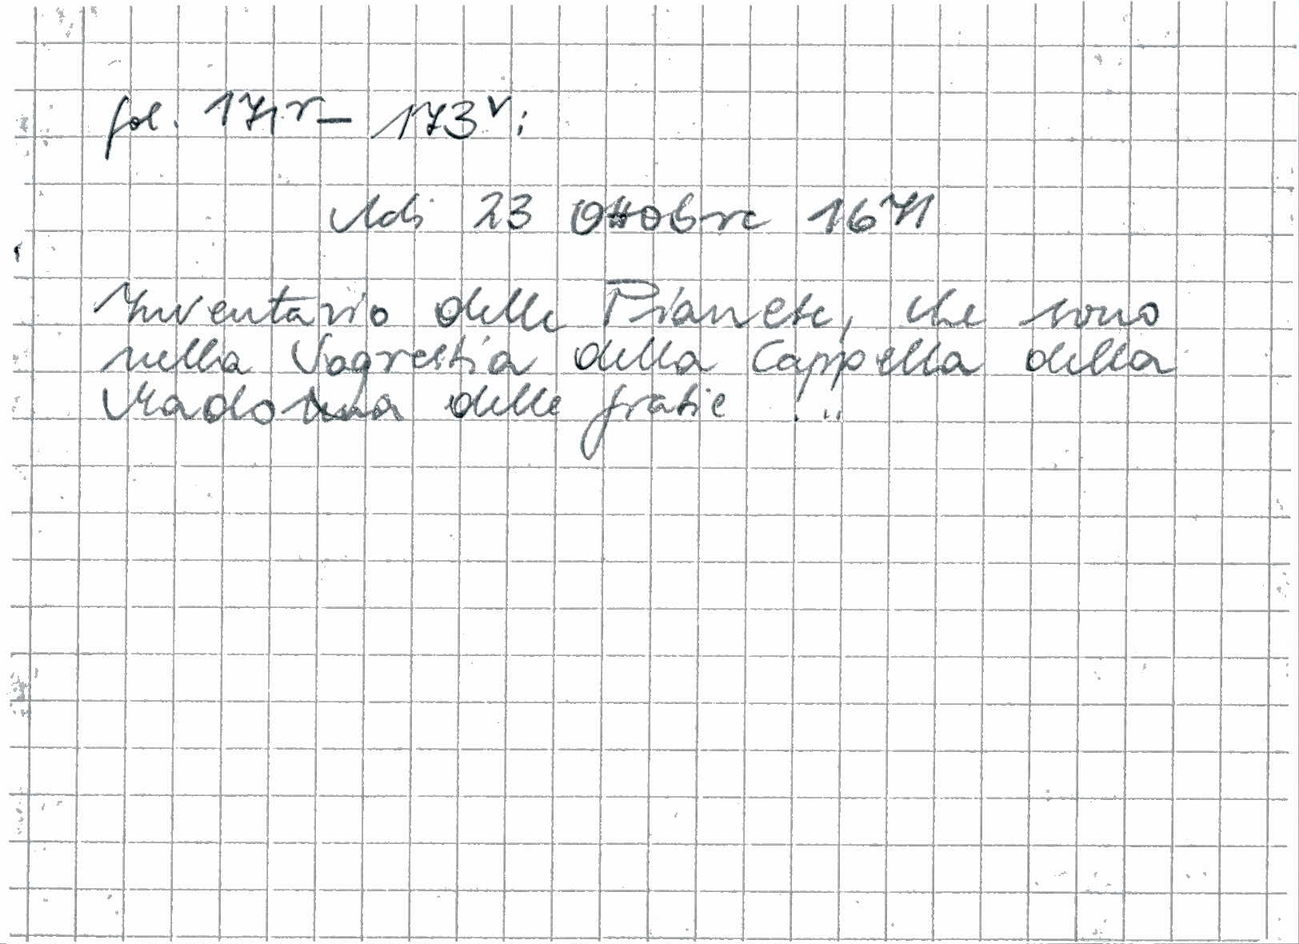 fol. 171r – 173v:
Adi 23 Ottobre 1671
Inventario delle Pianete, che sono
nella Sagrestia della Cappella della
Madonna delle gratie ...